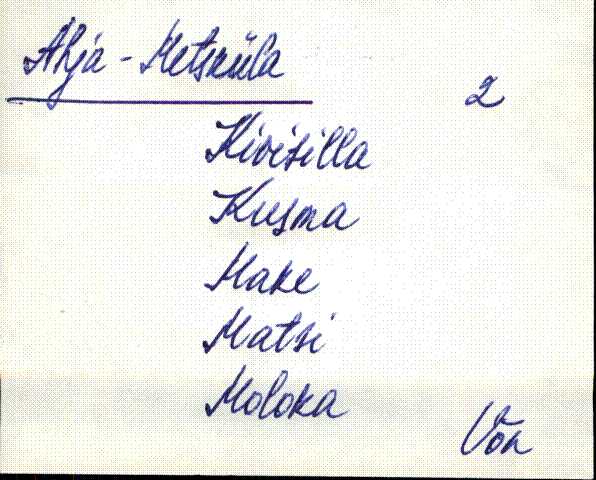 Ahja-Metsküla
2
Kivisilla
Kusma
Make
Matsi
Moloka
Võn